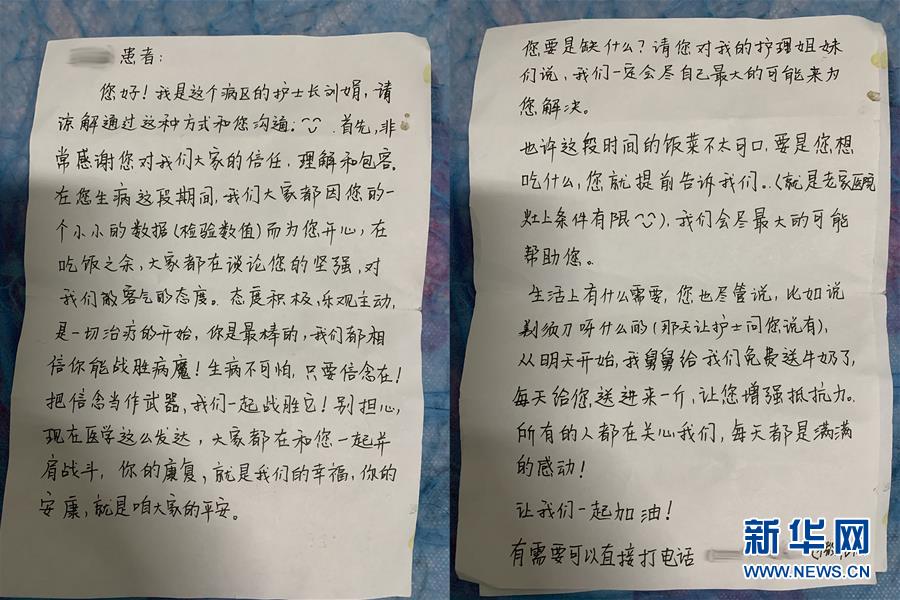 患者：
您好！我是这个病区的护士长刘娟，请
谅解通过这种方式和您沟通。首先，非
常感谢您对我们大家的信任，理解和包容。
在您生病这段期间，我们大家都因您的一
个小小的数据（检验数值）而为您开心，在
吃饭之余，大家都在谈论您的坚强，对
我们的客气的态度。态度积极，乐观主动，
是一切治疗的开始，你是最棒的，我们都相
信你能战胜病魔！生病不可怕，只要信念在！
把信念当作武器，我们一起战胜它！别担心，
现在医学这么发达，大家都在和您一起并
肩战斗，你的康复、就是我们的幸福，你的
安康，就是咱大家的平安。
您要是缺什么？请您对我的护理姐妹
们说，我们一定会尽自己最大的可能来为
您解决。
也许这段时间的饭菜不太可口，要是您想
吃什么，您就提前告诉我们。（就是老家医院
灶上条件有限），我们会尽最大的可能
帮助您。
生活上有什么需要，您也尽管说，比如说
剃须刀呀什么的（那天让护士问您说有），
从明天开始，我舅舅给我们免费送牛奶了，
每天给您送进来一斤，让您增强抵抗力。
所有的人都在关心我们，每天都是满满
的感动！
让我们一起加油！
有需要可以直接打电话
新华网
WWW.NEWS.CN